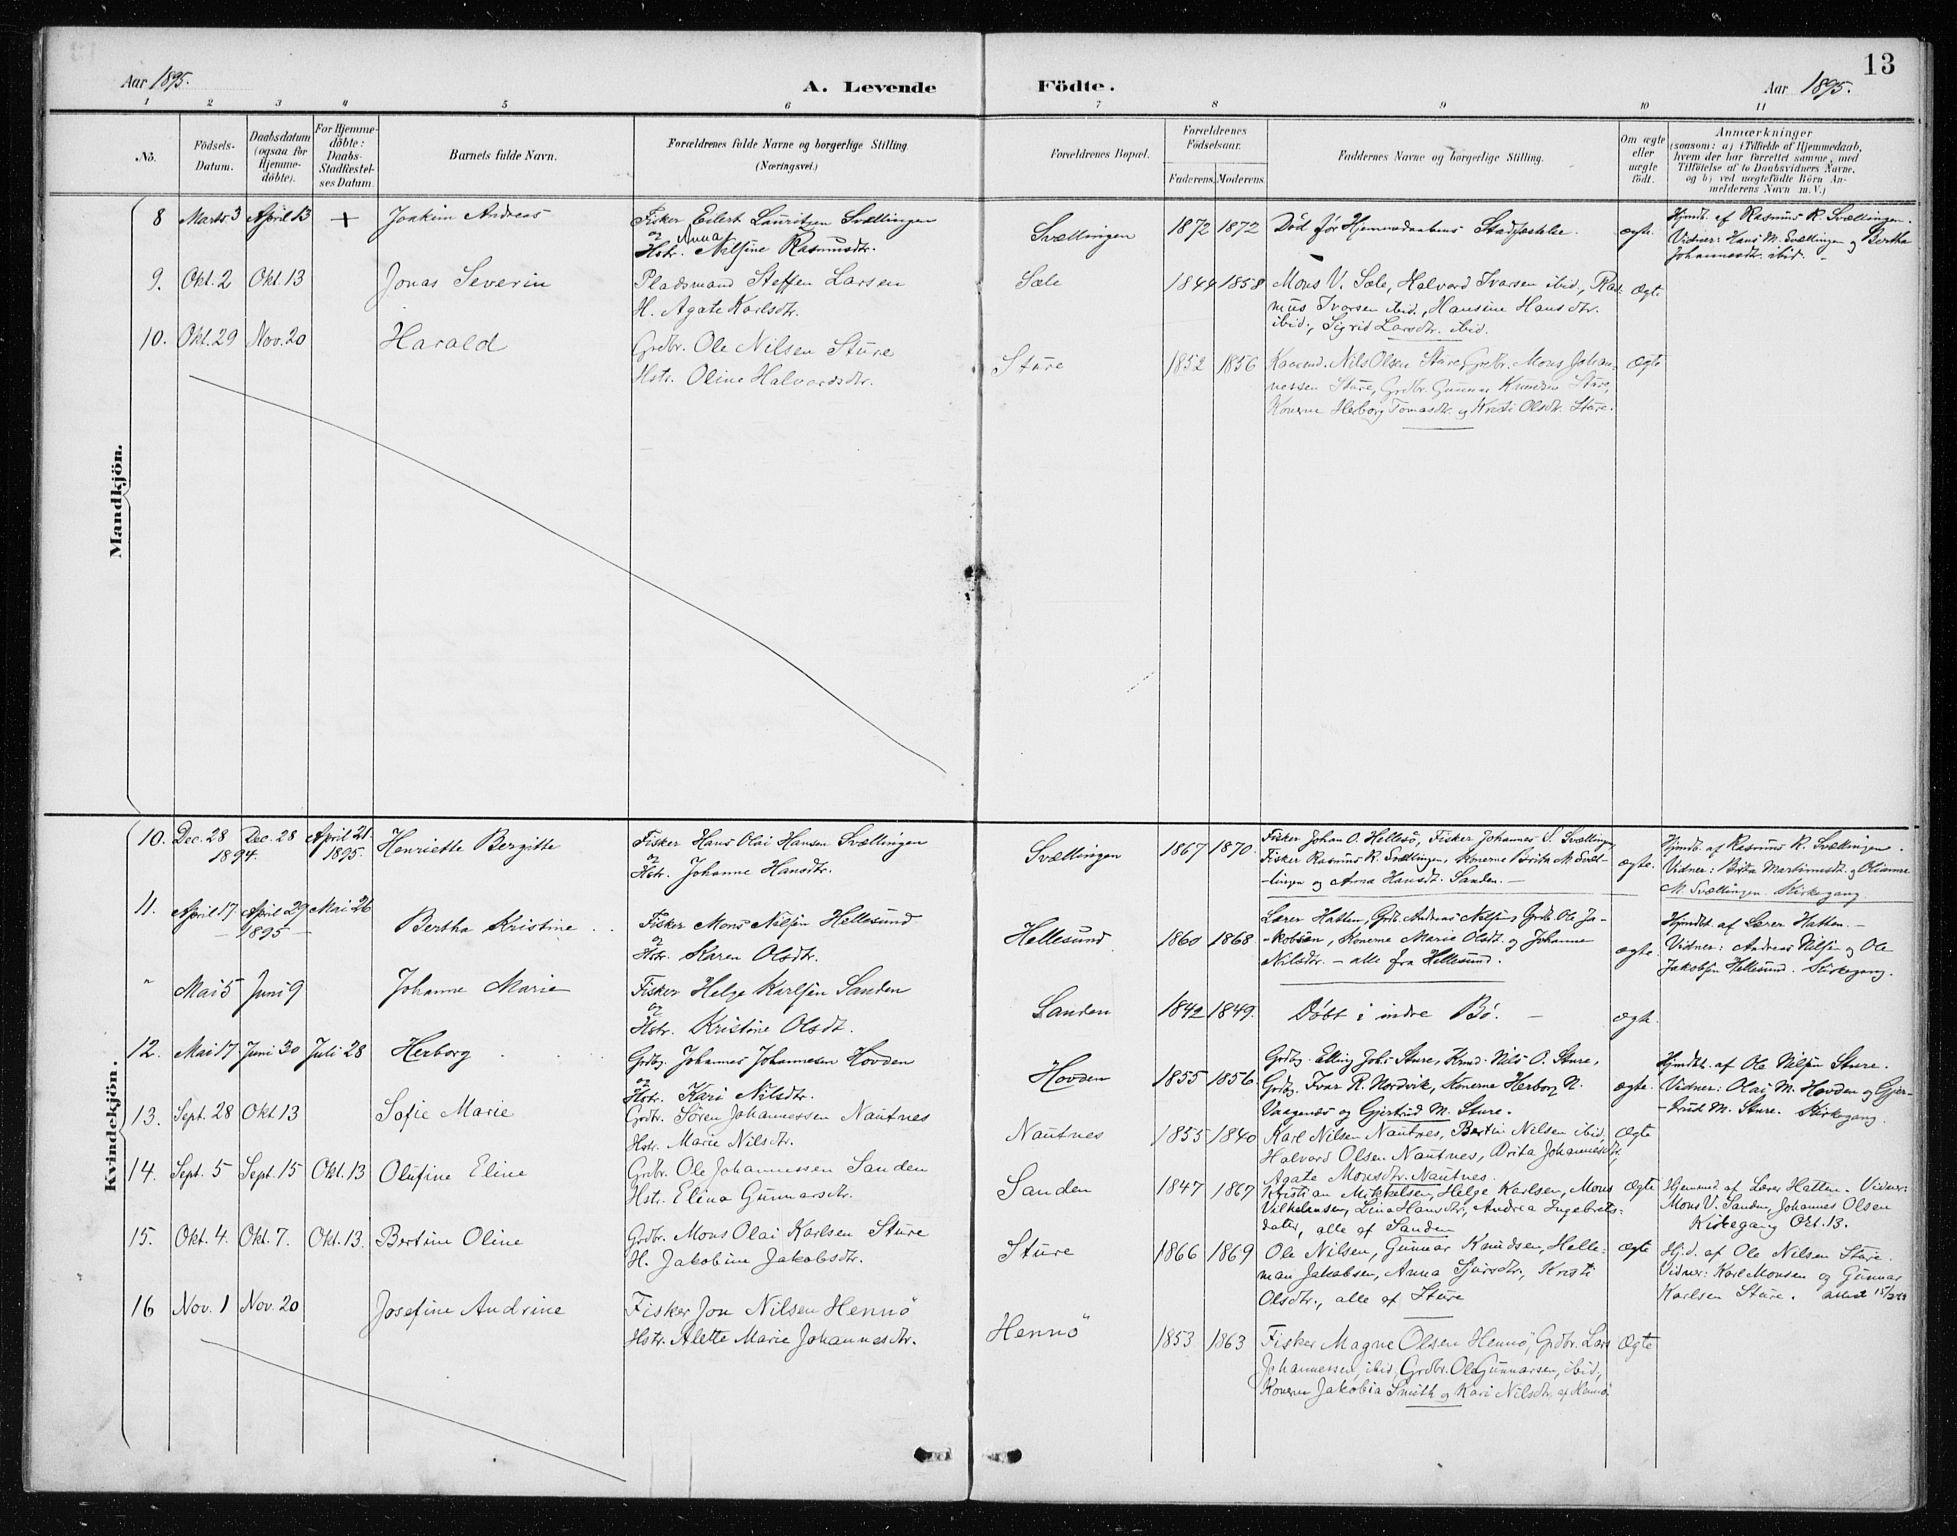 13
Aar 1895.
A. Levende Födte.
Aar 1895.
1 2 3 4 5 6 7 8 9 10 11
No.
Födsels-
Datum.
Daabsdatum
(ogsaa for
Hjemme-
döbte).
For Hjemme-
döbte:
Daabs-
Stadfæstel-
ses Datum.
Barnets fulde Navn.
Forældrenes fulde Navne og borgerlige Stilling
(Næringsvei.)
Forældrenes Bopæl.
Forældrenes
Födselsaar.
Faderens. Moderens.
Faddernes Navne og borgerlige Stilling.
Om ægte
eller
uægte
födt.
Anmærkninger
(saasom: a) i Tilfælde af Hjemmedaab,
hvem der har forrettet samme, med
Tilföielse af to Daabsvidners Navne.
og b) ved uægtefödte Börn An-
melderens Navn m. V.)
Mandkjön.
8 Marts 3 April 13 + Joakim Andreas
Fisker Eilert Lauritzen Svellingen
og Anna
Hstr. Nilsine Rasmusdtr.
Svællingen 1872 1872 Död før Hjemmedaabens Stadfæstelse. ægte.
Hjmdt. af Rasmus R. Svællingen.
Vidner: Hans M. Svællingen og Bertha
Johannesdtr. ibid. -
9. Okt. 2 Okt. 13 Jonas Severin
Pladsmand Steffen Larsen
H. Agate Karlsdtr.
Sæle 1844 1858
Mons V. Sæle, Halvard Ivarsen ibid., Ras-
mus Ivarsen ibid., Hansine Hansdtr.
ibid., Sigrid Larsdtr. ibid.
Ægte
10. Okt. 29 Nov. 20 Harald
Grdbr. Ole Nilsen Sture
Hstr. Oline Halvardsdtr.
Sture 1852 1856
Kaarmd. Nils Olsen Sture, Grdbr. Mons Johan-
nessen Sture, Grdbr. Gunnar Knudsen Sture,
Konerne Herborg Tomasdtr. og Kristi Olsdtr. Sture.
Ægte
Kvindekjön.
10. Dec. 28 Dec. 28 April 21
1894. 1895.
Henriette Bergitte
Fisker Hans Olai Hansen Svællingen
og
Hstr. Johanne Hansdtr.
Svællingen 1867 1870.
Fisker Johan O. Hellesö, Fisker Johannes S. Svællingen
Fisker Rasmus R. Svællingen, Konerne Brita M. Svæl-
-lingen og Anna Hansdt. Sanden. -
ægte.
Hjmdt. af Rasmus R. Svællingen.
Vidner: Brita Martinusdt. og Olianne
M. Svællingen. Kirkegang.
11. April 17 April 29 Mai 26
- 1895 -
Bertha Kristine
Fisker Mons Nilsen Hellesund
og
Hstr. Karen Olsdtr.
Hellesund 1860 1868
Lærer Hatten, Grdb. Andreas Nilsen, Grdb. Ole Ja-
-kobsen, Konerne Marie Olsdt. og Johanne
Nilsdtr. - alle fra Hellesund.
ægte.
Hjmdt. af Lærer Hatten. -
Vidner: Andreas Nilsen og Ole
Jakobsen Hellesund. Kirkegang.
" Mai 5 Juni 9 Johanne Marie
Fisker Helge Karlsen Sanden
og
Hstr. Kristine Olsdt.
Sanden 1842 1849. Döbt i indre Bö. - ægte.
12. Mai 17 Juni 30 Juli 28 Herborg
Grdbg. Johannes Johannesen Hovden
og
Hstr. Kari Nilsdtr.
Hovden 1855 1856.
Grdbg. Elling Johs Sture, Krmd. Nils O. Sture,
Grdbg. Ivar R. Nordvik, Konerne Herborg N.
Vaagenes og Gjertrud M. Sture.
ægte.
Hjmdt. af Ole Nilsen Sture.
Vidner: Olai M. Hovden og Gjer-
-trud M. Sture. Kirkegang.
13. Sept. 28 Okt. 13 Sofie Marie
Grdbr. Sören Johannessen Nautnes
Hstr. Marie Nilsdtr.
Nautnes 1855 1840
Karl Nilsen Nautnes, Bertin Nilsen ibid,
Halvard Olsen Nautnes, Brita Johannesdtr,
Agate Monsdtr. Nautnes.
Ægte
14. Sept. 5 Sept. 15 Okt. 13 Olufine Eline
Grdbr. Ole Johannessen Sanden
Hstr. Elina Gunnarsdtr.
Sanden 1847 1867
Kristian Mikkelsen, Helge Karlsen, Mons
Vilhelmsen, Lina Hansdtr, Andrea Ingebrets-
datter, alle af Sanden
Ægte
Hjemmd. af Lærer Hatten. Vidner:
Mons V. Sanden, Johannes Olsen
Kirkegang Okt. 13.
15. Okt. 4. Okt. 7. Okt. 13. Bertine Oline
Grdbr. Mons Olai Karlsen Sture
H. Jakobine Jakobsdtr.
Sture 1866 1869
Ole Nilsen, Gunnar Knudsen, Helle-
man Jakobsen, Anna Sjursdtr, Kristi
Olsdtr., alle af Sture
Ægte
Hj.d. af Ole Nilsen Sture.
Vidner: Karl Monsen og Gunnar
Karlsen Sture.
16 Nov. 1 Nov. 20 Josefine Andrine
Fisker Jon Nilsen Hennö
Hstr. Alette Marie Johannesdtr.
Hennö 1853 1863
Fisker Magne Olsen Hennö, Grdbr. Lars
Johannessen, ibid, Grdbr. Ole Gunnarsen, ibid,
Konerne Jakobia Smith og Kari Nilsdtr. af Hennö
Ægte